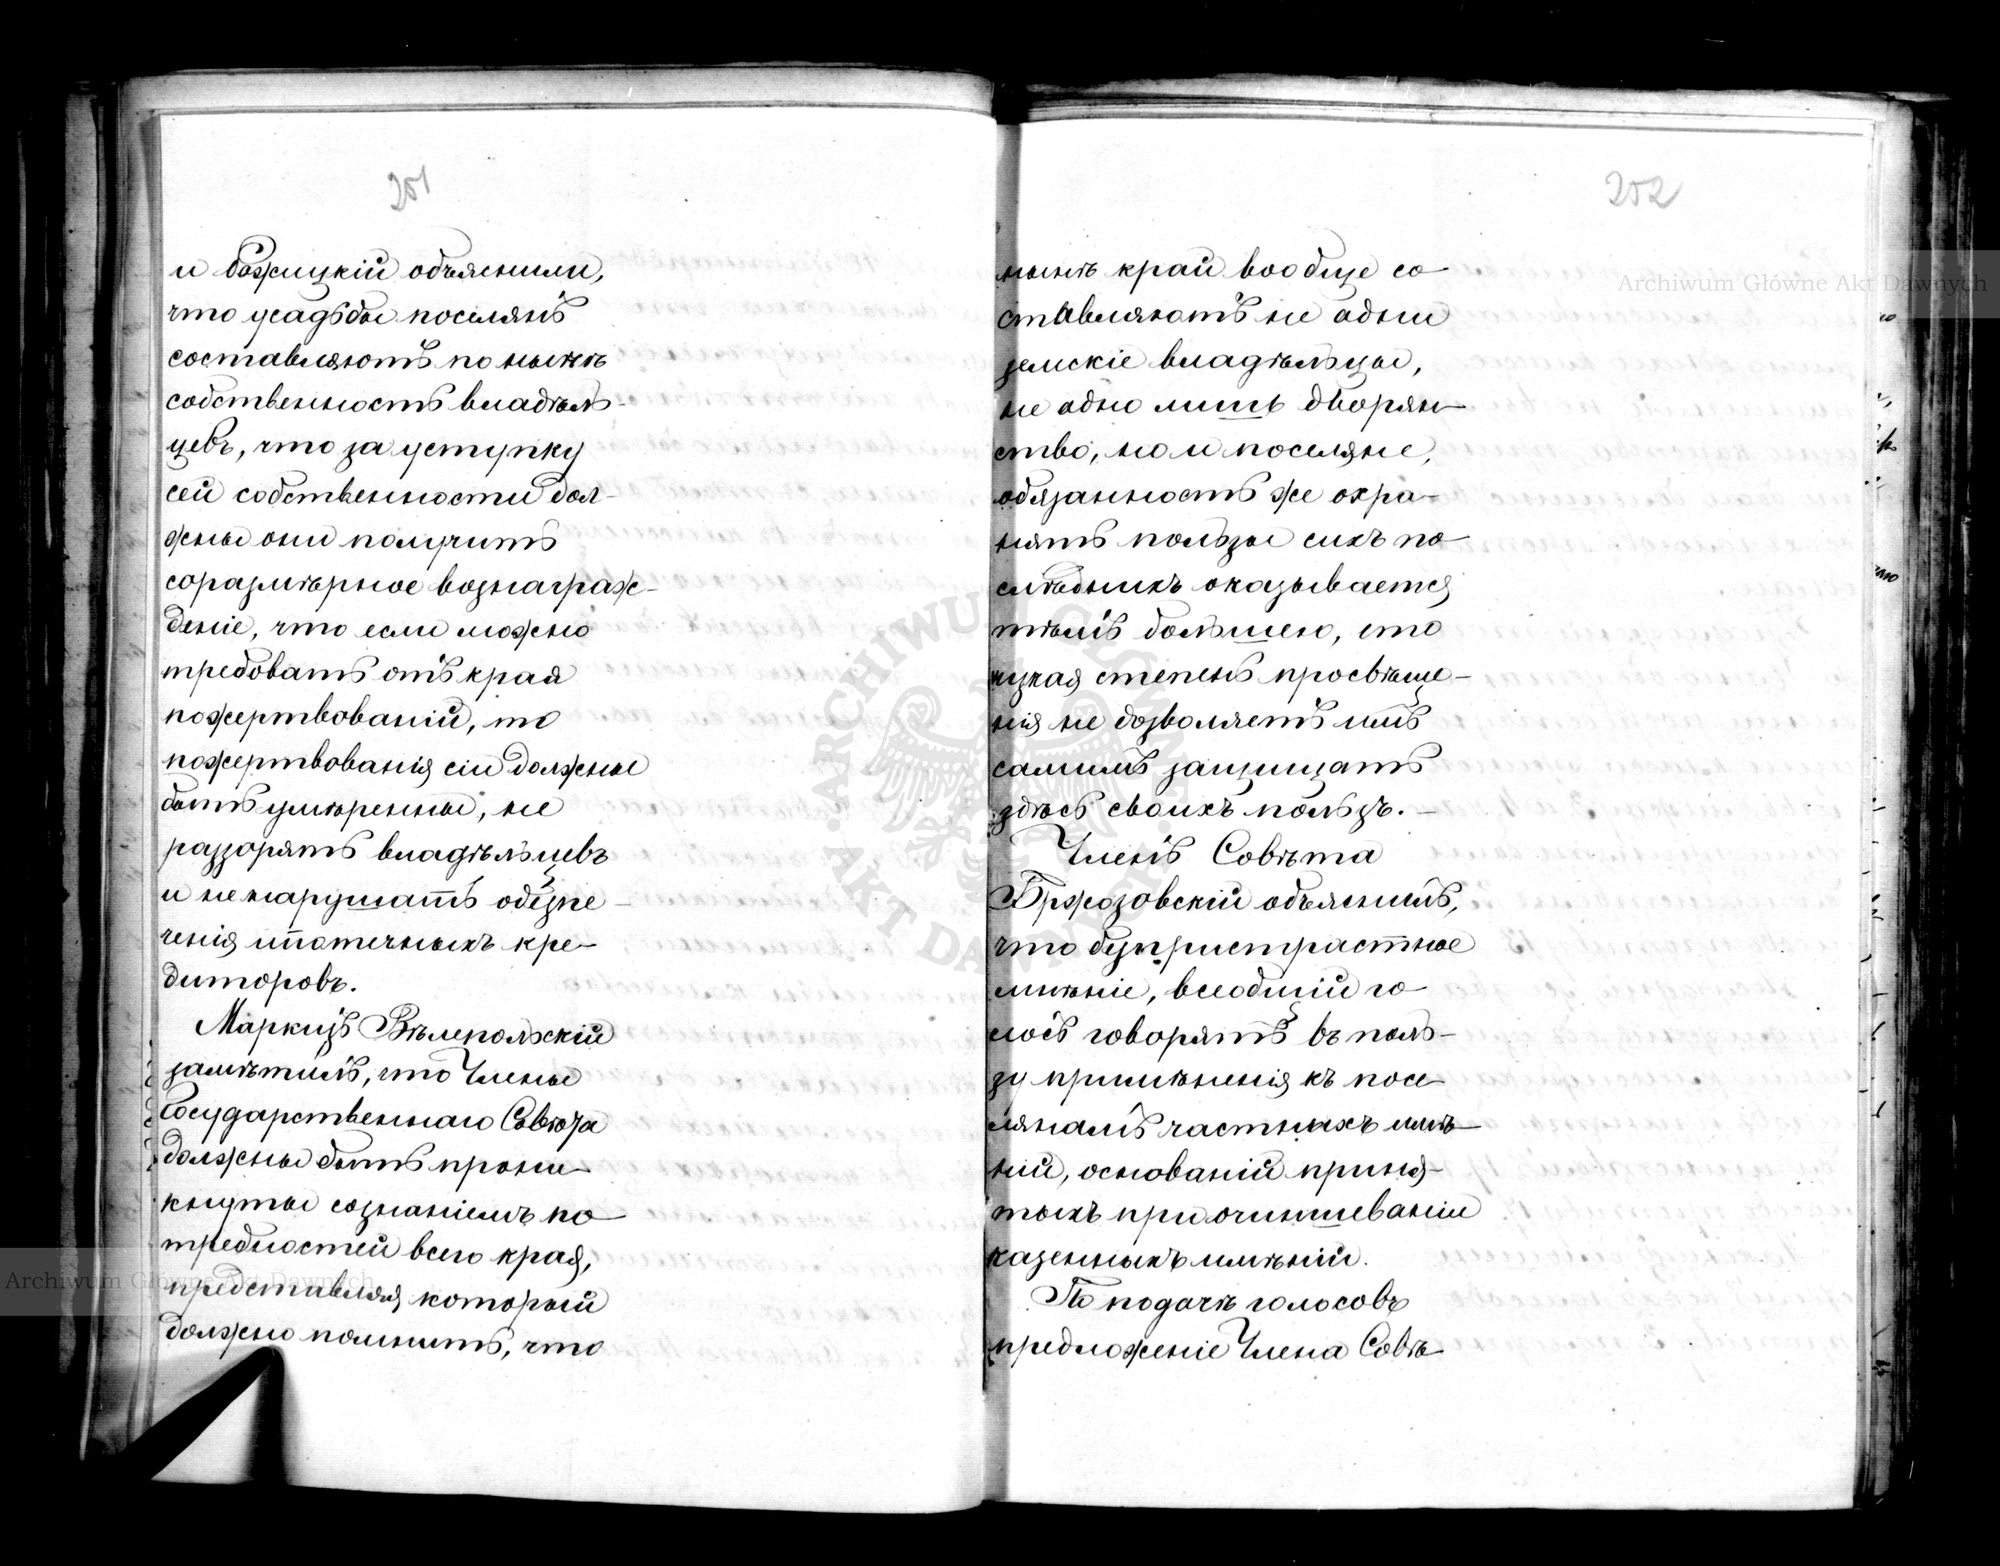 201
и Божицкій объяснили,
что усадьбы поселянъ
составляютъ по нынѣ
собственность владѣль-
цевъ, что за уступку
сей собственности дол-
жны они получить
соразмѣрное вознаграж-
деніе, что если можно
требовать отъ края
пожертвованій, то
пожертвованія сіи должны
быть умѣренны, не
раззорять владѣльцевъ
и не нарушать обезпе-
ченія ипотечныхъ кре-
диторовъ.
Маркизъ Вѣлепольскій
замѣтилъ, что Члены
Государственнаго Совѣта
должны быть прони-
кнуты сознаніемъ по-
требностей всего края,
представляя который
должно помнить, что
252
нынѣ край вообще со-
ставляютъ не одни
земскіе владѣльцы,
не одно лишь дворян-
ство, но и поселяне,
обязанность же охра-
нять пользы сихъ по-
слѣднихъ оказывается
тѣмъ большею, что
низкая степень просвѣще-
нія не дозволяетъ имъ
самимъ защищать
здѣсь своихъ пользъ. —
Членъ Совѣта
Бржозовскій объяснилъ,
что безпристрастное
мнѣніе, всеобщій го-
лосъ говорятъ въ поль-
зу примѣненія къ посе-
лянамъ частныхъ имѣ-
ній, основаній приня-
тыхъ при очиншеваніи
казенныхъ имѣній.
По подачѣ голосовъ
предложеніе Члена Совѣ-
Archiwum Główne Akt Dawnych
Archiwum Główne Akt Dawnych
ARCHIWUM GŁÓWNE AKT DAWNYCH